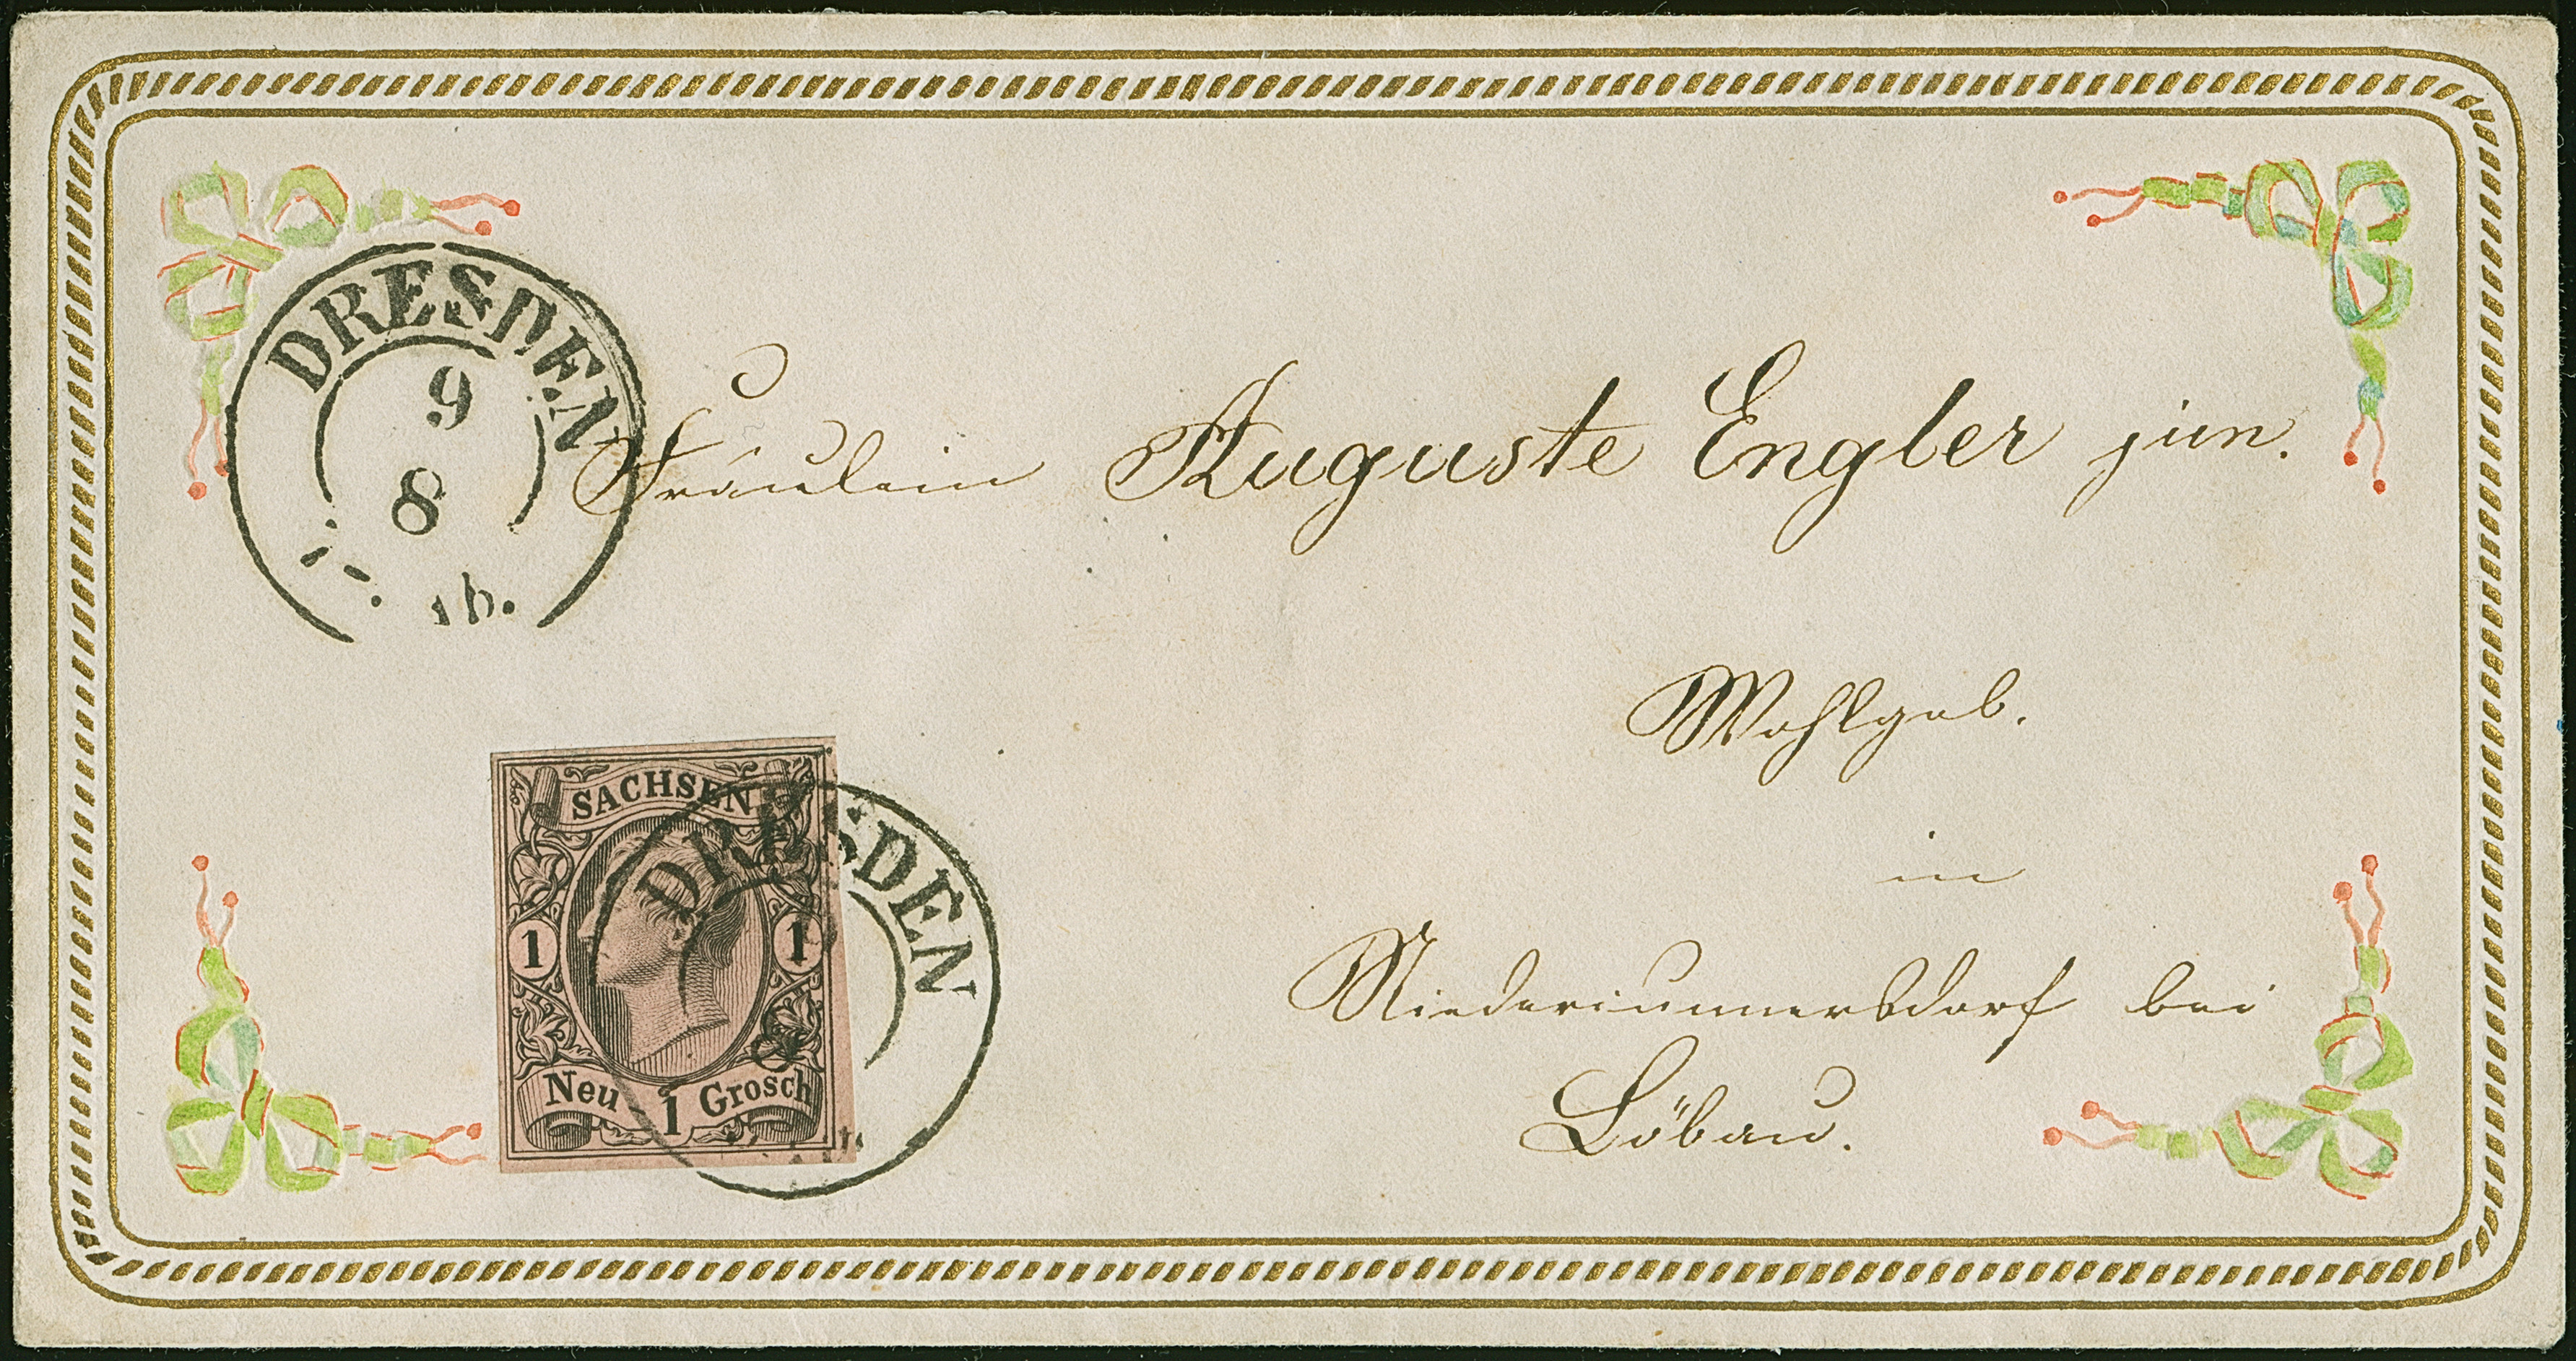 DRESDEN
9
8
Fräulein Auguste Engler jun.
Wohlgeb.
in
Niedercunnersdorf bei
Löbau.
SACHSEN
1 1
Neu 1 Grosch
DRESDEN